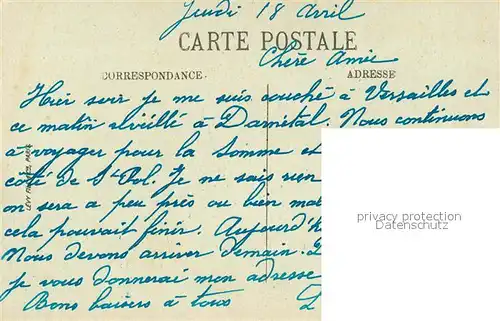 Jeudi 18 Avril
CARTE POSTALE
Chère Amie
CORRESPONDANCE. ADRESSE
Hier soir je me suis couché à Versailles et
ce matin réveillé à Darnétal. Nous continuons
à voyager pour la Somme et
côté de St Pol. Je ne sais rien
on sera a peu près ou bien mal
cela pouvait finir. Aujourd'h
Nous devons arriver demain.
je vous donnerai mon adresse
Bons baisers à tous
privacy protection overlay
Datenschutz